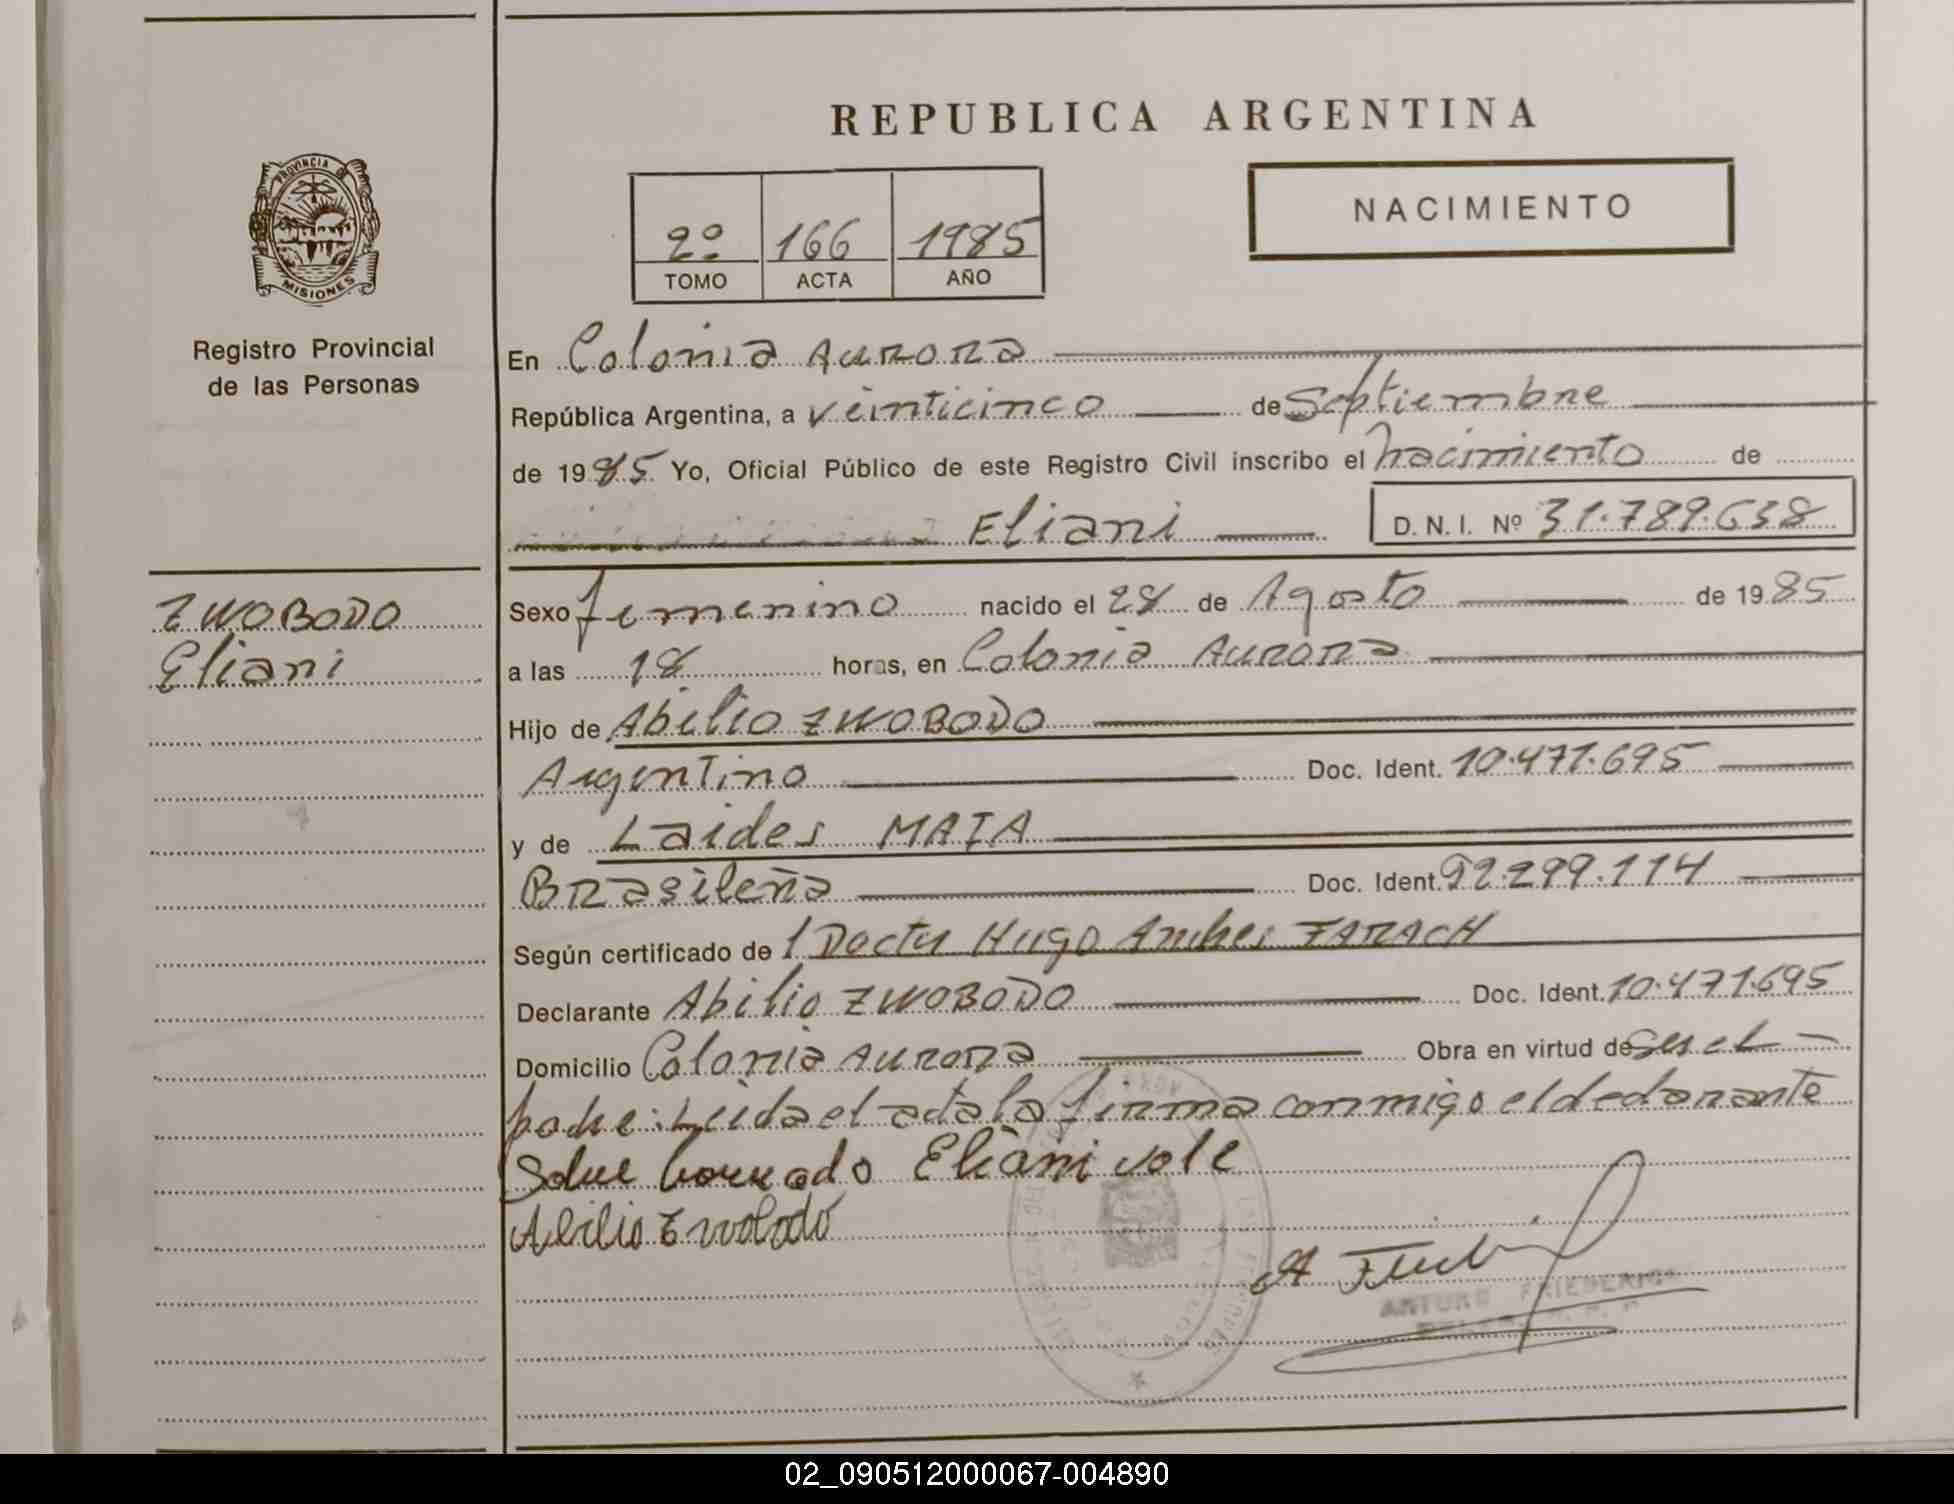 REPUBLICA ARGENTINA
PROVINCIA DE
MISIONES
Registro Provincial
de las Personas
2º 166 1985
TOMO ACTA AÑO
NACIMIENTO
En Colonia Aurora
República Argentina, a veinticinco de Septiembre
de 1985. Yo, Oficial Público de este Registro Civil inscribo el nacimiento de
Eliani D. N. I. Nº 31.789.638
ZWOBODO
Eliani
Sexo femenino nacido el 28 de Agosto de 1985
a las 18 horas, en Colonia Aurora
Hijo de Abilio ZWOBODO
Argentino Doc. Ident. 10.471.695
y de Laides MAIA
Brasileña Doc. Ident. 92.299.114
Según certificado de l Doctor Hugo FARACH
Declarante Abilio ZWOBODO Doc. Ident. 10.471.695
Domicilio Colonia Aurora Obra en virtud de ser el
padre: Leida el acta la firma conmigo el declarante
Sobre borrado Eliani vale
Abilio Zwobodo
ARTURO FRIEDERICH
02_090512000067-004890